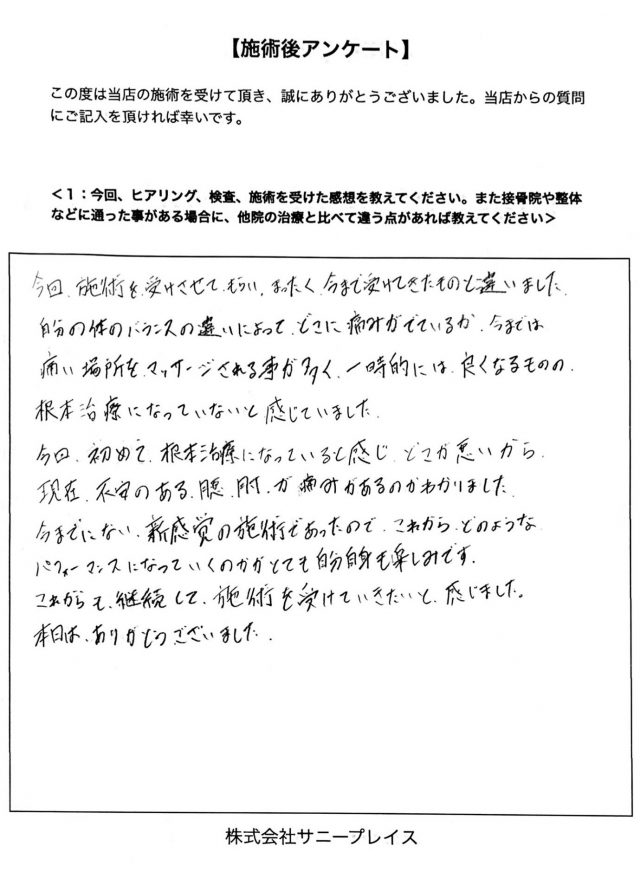 【施術後アンケート】
この度は当店の施術を受けて頂き、誠にありがとうございました。当店からの質問
にご記入を頂ければ幸いです。
<1：今回、ヒアリング、検査、施術を受けた感想を教えてください。また接骨院や整体
などに通った事がある場合に、他院の治療と比べて違う点があれば教えてください>
今回、施術を、受けさせて、もらい、まったく、今まで受けてきたものと違いました。
自分の体のバランスの違いによって、どこに痛みがでているか、今までは
痛い場所を、マッサージされる事が多く、一時的には、良くなるものの、
根本治療になっていないと感じていました。
今回、初めて、根本治療になっていると感じ、どこが悪いから、
現在、不安のある、腰、肘、が痛みがあるのがわかりました。
今までにない、新感覚の施術であったので、これから、どのような
パフォーマンスになっていくのかがとても自分自身も楽しみです。
これからも、継続して、施術を受けていきたいと、感じました。
本日は、ありがとうございました。
株式会社サニープレイス